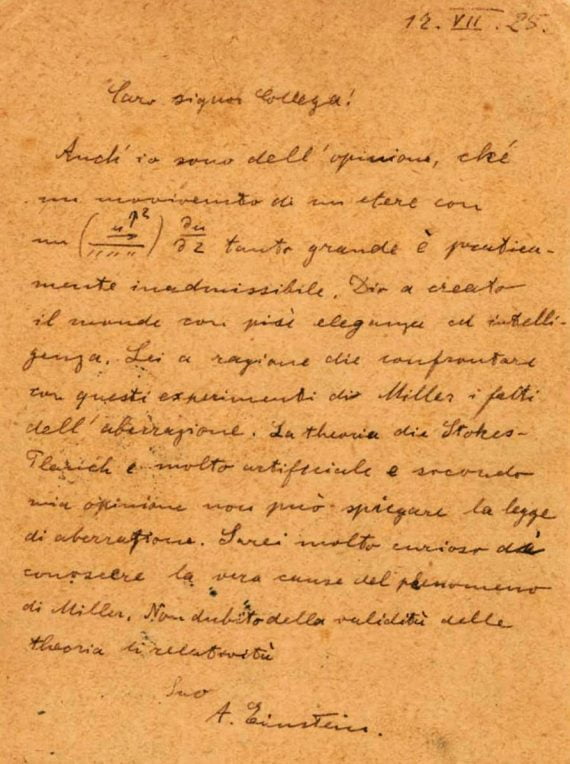 12. VII. 25.
Caro signor Collega!
Anch' io sono dell' opinione, ché
un movimento di un etere con
un ( u z ) ∂u/∂z tanto grande è pratica-
mente inadmissibile. Dio a creato
il mondo con più eleganza ed intelli-
genza. Lei a ragione die confrontare
con questi experimenti di Miller i fatti
dell' aberrazione. La theoria die Stokes-
Planck e molto artificiale e secondo
mia opinione non può spiegare la legge
di aberratione. Sarei molto curioso di
conoscere la vera cause del phenomeno
di Miller. Non dubito della validitù delle
theoria di relatività
Suo
A. Einstein.